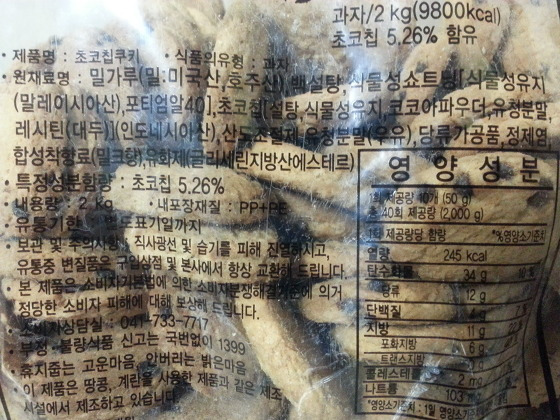 과자/2 kg(9800kcal)
초코칩 5.26% 함유
• 제품명 : 초코칩쿠키 • 식품의유형 : 과자
• 원재료명 : 밀가루(밀:미국산,호주산), 백설탕, 식물성쇼트닝[식물성유지
(말레이시아산),포티엄알40],초코칩[설탕,식물성유지,코코아파우더,유청분말,
레시틴(대두)](인도네시아산), 산도조절제,유청분말(우유),당류가공품,정제염,
합성착향료(밀크향),유화제(글리세린지방산에스테르)
• 특정성분함량 : 초코칩 5.26%
• 내용량 : 2 kg • 내포장재질 : PP+PE
• 유통기한 : 별도표기일까지
• 보관 및 주의사항 : 직사광선 및 습기를 피해 진열하시고,
유통중 변질품은 구입상점 및 본사에서 항상 교환해 드립니다.
• 본 제품은 소비자기본법에 의한 소비자분쟁해결기준에 의거
정당한 소비자 피해에 대해 보상해 드립니다.
• 소비자상담실 : 041-733-7717
• 부정·불량식품 신고는 국번없이 1399
• 휴지줍는 고운마음, 안버리는 밝은마음
• 이 제품은 땅콩, 계란을 사용한 제품과 같은 제조
시설에서 제조하고 있습니다.
영 양 성 분
1회 제공량 10개 (50 g)
총 40회 제공량 (2,000 g)
1회 제공량당 함량 *%영양소기준치
열량 245 kcal
탄수화물 34 g
당류 12 g
단백질 4 g
지방 11 g
포화지방 6 g
트랜스지방
콜레스테롤 2 mg
나트륨 103 mg
*%영양소기준치 : 1일 영양소기준치